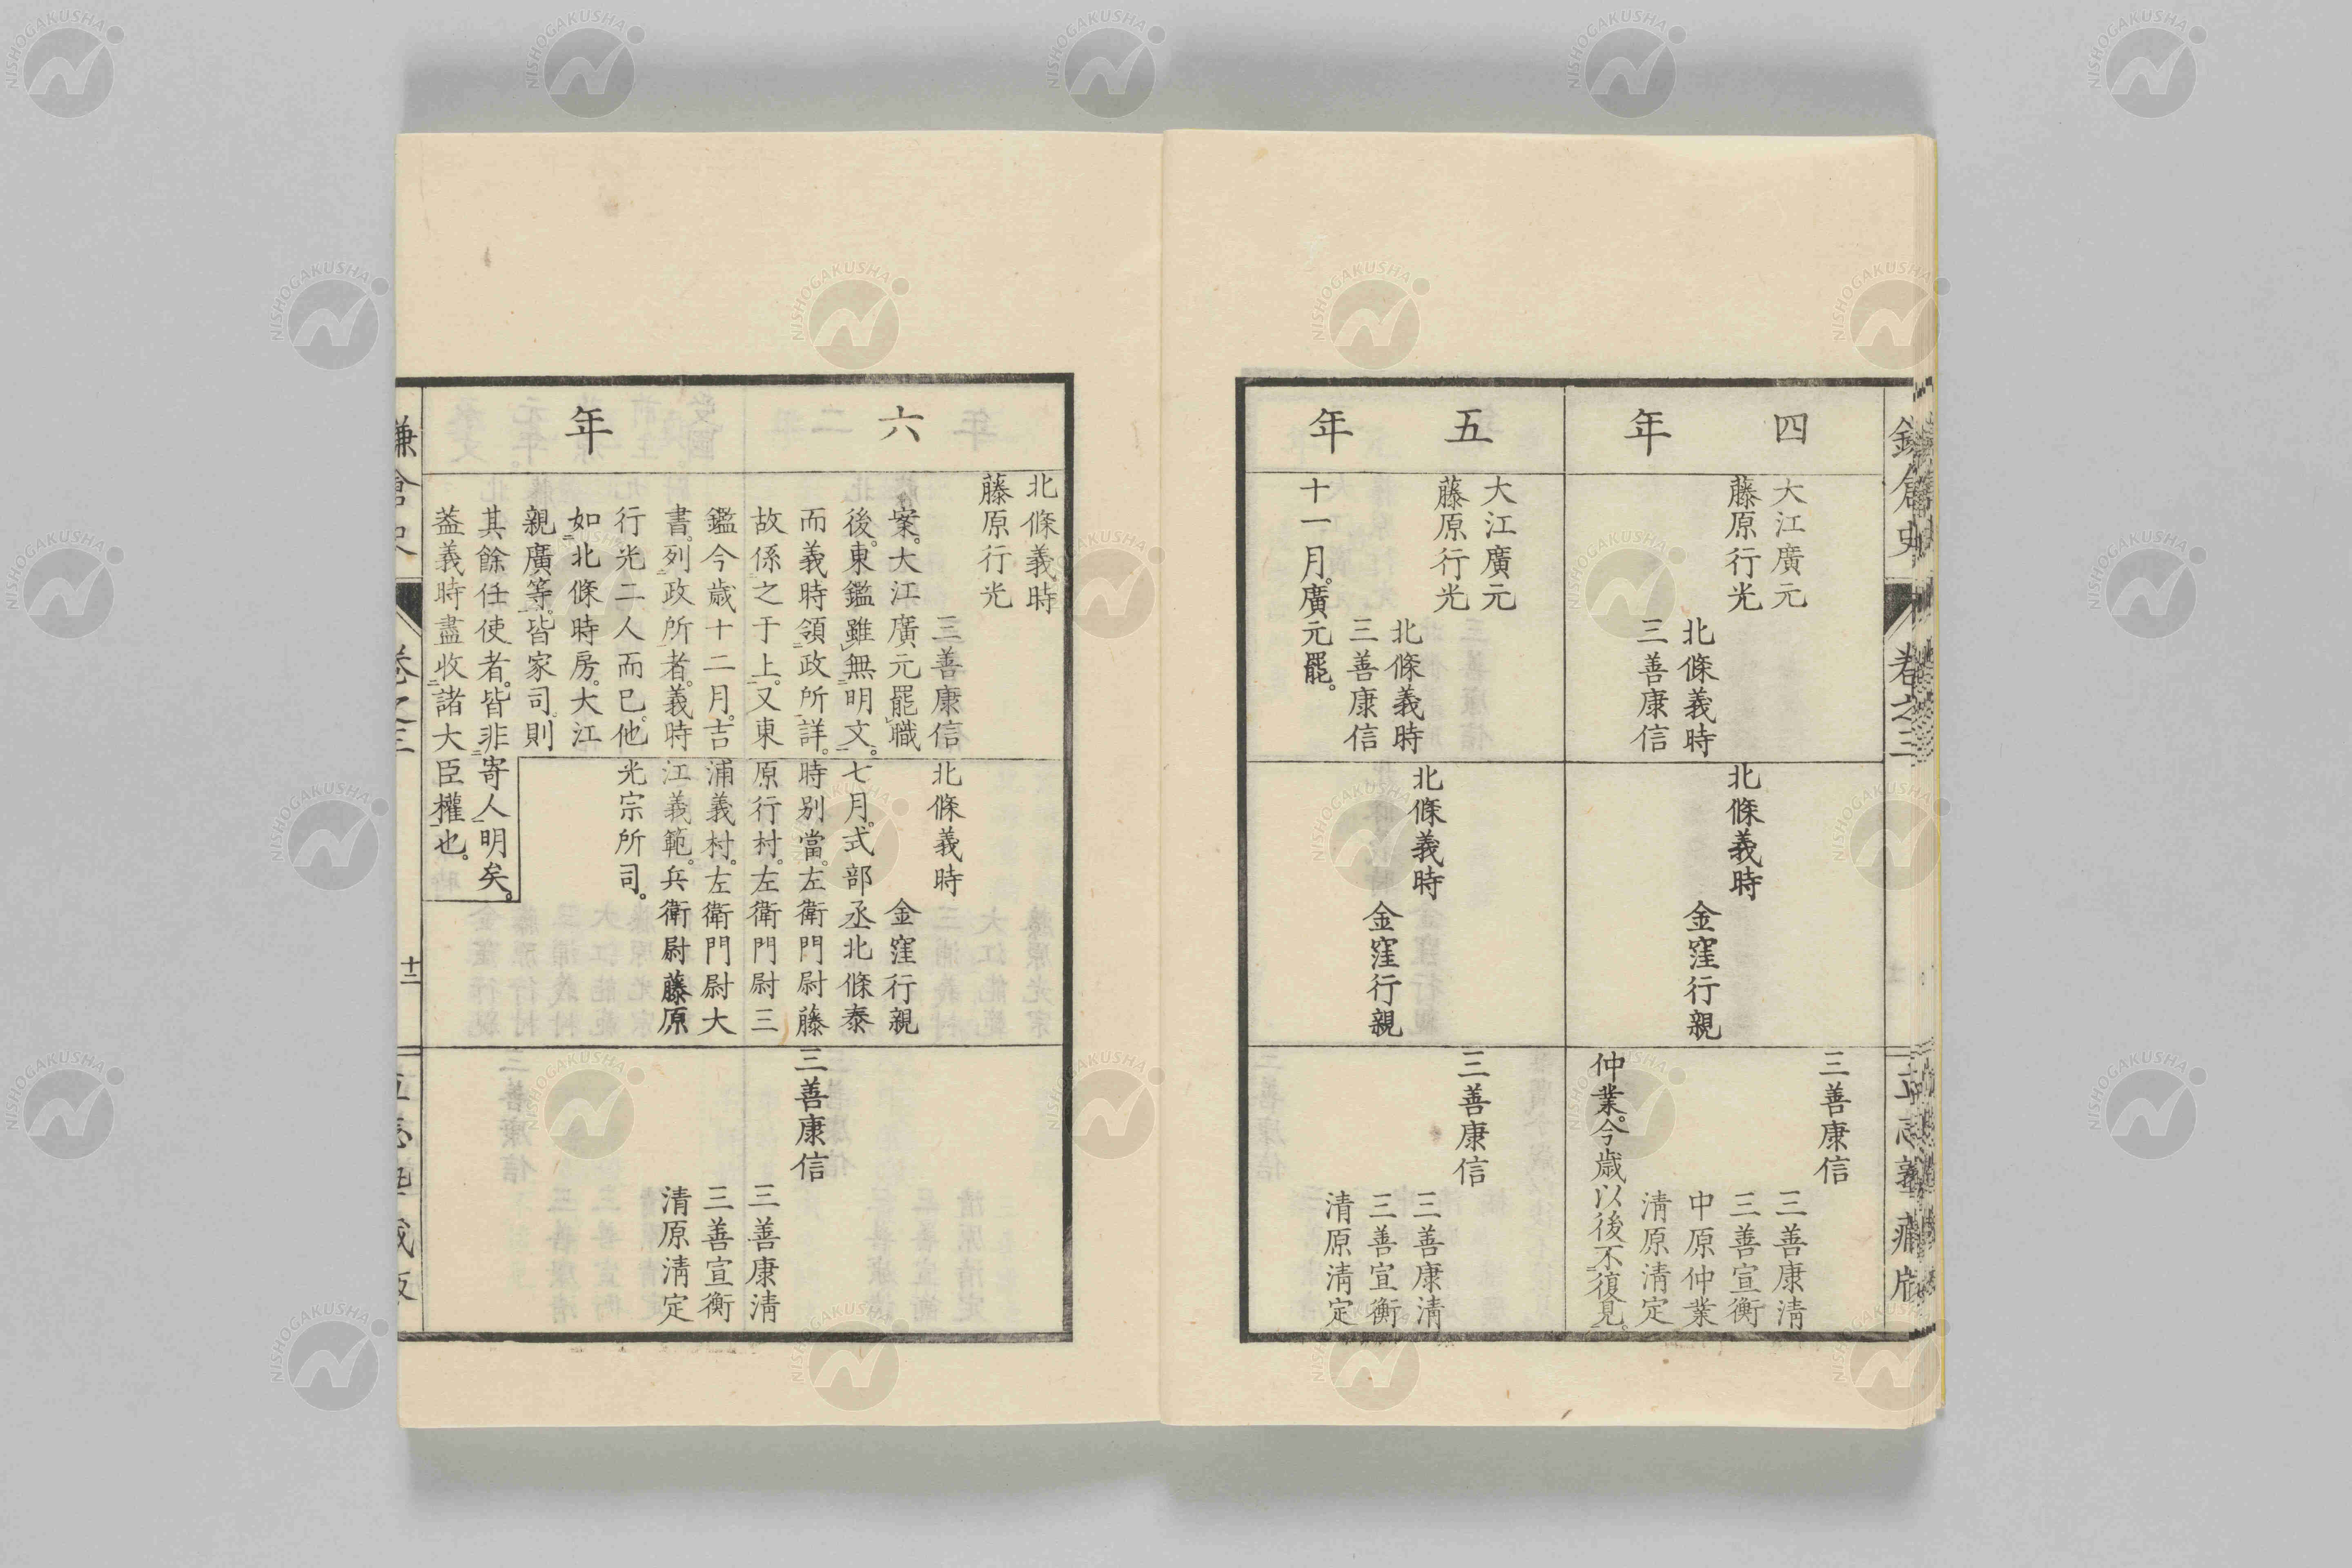 四年
大江廣元
藤原行光
北條義時
三善康信
北條義時
金窪行親
三善康信
三善康淸
三善宣衡
中原仲業
淸原淸定
仲業。今歲以後不復見。
五年
大江廣元
藤原行光
北條義時
三善康信
十一月。廣元罷。
北條義時
金窪行親
三善康信
三善康淸
三善宣衡
淸原淸定
六年
北條義時
藤原行光
三善康信
案。大江廣元罷職
後。東鑑雖無明文。
而義時領政所詳。
故係之于上。又東
鑑今歲十二月。吉
書。列政所者。義時
行光二人而已。他
如北條時房。大江
親廣等。皆家司。則
其餘任使者。皆非寄人明矣。
葢義時盡收諸大臣權也。
北條義時
金窪行親
七月。式部丞北條泰
時別當。左衛門尉藤
原行村。左衛門尉三
浦義村。左衛門尉大
江義範。兵衛尉藤原
光宗所司。
三善康信
三善康淸
三善宣衡
淸原淸定
鎌倉史
卷之三
十二
NISHOGAKUSHA